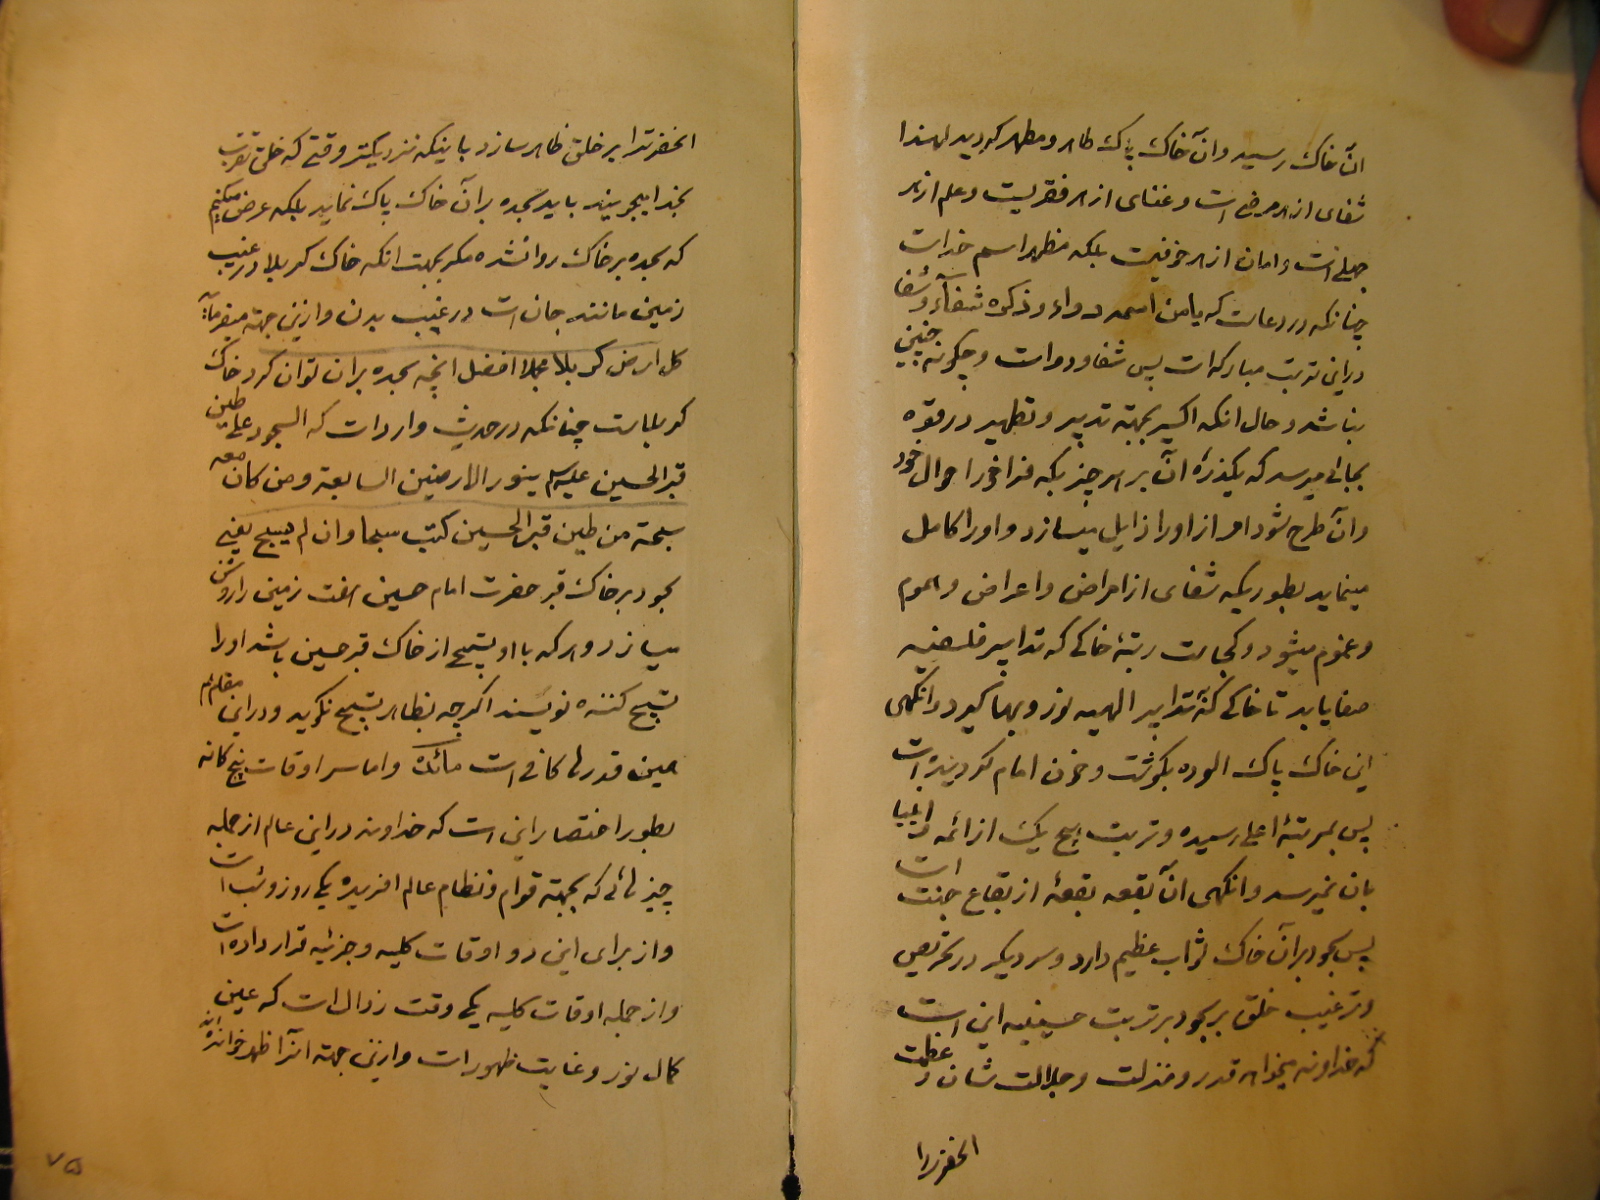 آن خاک رسید و آن خاک پاک طاهر و مطهر گردید لهذا
شفای از هر مرضی است و غنای از هر فقریست و علم از هر
جهلی است و امان از هر خوفیست بلکه مظهر اسم خداست
چنانکه در دعاست که یا من اسمه دواء و ذکره شفآء و شفا
در این تربت مبارکه است پس شفا و دواست و چگونه چنین
نباشد و حال انکه اکسیر بجهته تدبیر و تطهیر در قوه
بجائی میرسد که یکذرهٔ آن بر هر چیز بکه فرا خور احوال خود
و آن طرح شود امراز او را زایل میسازد و او را کامل
مینماید بطوریکه شفای از امراض و اعراض و هموم
و غموم میشود و کجاست رتبهٔ خاکی که تدابیر فلسفیه
صفا یابد تا خاکی که بتدابیر الهیه نور و بها گیرد و انکهی
این خاک پاک الوده بگوشت و خون امام گردیده است
پس بمرتبهٔ اعلی رسیده و تربت هیچ یک از ائمه و انبیا
بان نمیرسد و انکهی آن بقعه بقعهٔ از بقاع جنت است
پس سجود بر آن خاک ثواب عظیم دارد و سر دیگر در تحریص
و ترغیب خلق بر سجود بر تربت حسینیه این است
که خداوند میخواهد قدر و منزلت و جلالت شان و عظمت
انحضرترا
انحضرترا بر خلق ظاهر سازد باینکه نزدیکتر وقتی که خلق تقرب
بخدا میجویند باید سجده بر آن خاک پاک نماید بلکه عرض میکنم
که سجده بر خاک روا نشده مکر بجهت انکه خاک کربلا در غیب
زمین مانند جان است در غیب بدن و از این جهته میفرماید
کل ارض کربلا مجلا افضل انچه سجده بران توان کرد خاک
کربلاست چنانکه در حدیث وارد است که السجود علی طین
قبر الحسین علیه السلام ینور الارضین السابعة و من کان معه
سبحة من طین قبر الحسین کتب مسبحا و ان لم یسبح یعنی
سجود بر خاک قبر حضرت امام حسین هفت زمین را روشن
میسازد و هر که با او تسبیح از خاک قبر حسین باشد او را
تسبیح کننده نویسند اکرچه بظاهر تسبیح نگوید و در این مقام هم
همین قدرها کافی است مائله و اما سر اوقات پنج کانه
بطور اختصار این است که خداوند در این عالم از جمله
چیزهائی که بجهته قوام و نظام عالم افریده یکی روز و شب است
و از برای این دو اوقات کلیه و جزئیه قرار داده است
و از جمله اوقات کلیه یکی وقت زوال است که عین
کمال نور و غایت ظهور است و از این جهته انرا ظهر خوانده اند
۷۵